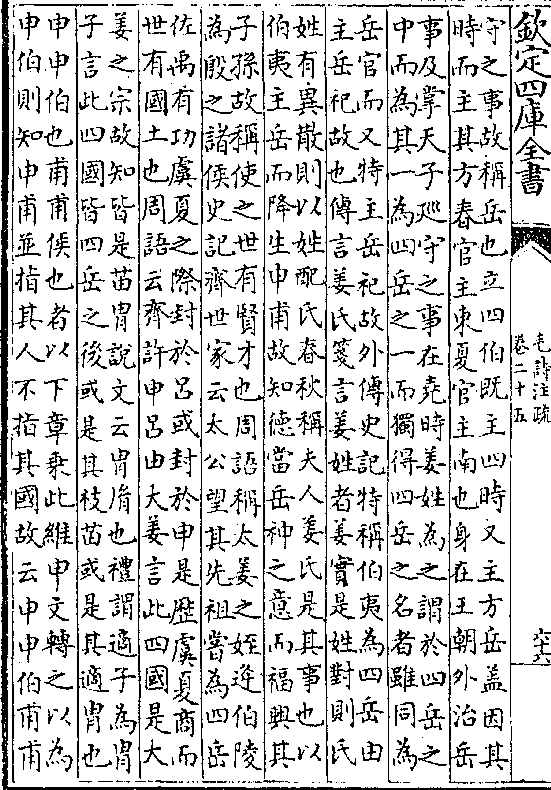 欽定四庫全書
毛詩注疏
卷二十五
六十六
守之事故稱岳也立四伯既主四時又主方岳蓋因其
時而主其方春官主東夏官主南也身在王朝外治岳
事及掌天子廵守之事在堯時姜姓為之謂於四岳之
中而為其一為四岳之一而獨得四岳之名者雖同為
岳官而又特主岳祀故外傳史記特稱伯夷為四岳由
主岳祀故也傳言姜氏箋言姜姓者姜實是姓對則氏
姓有異散則以姓配氏春秋稱夫人姜氏是其事也以
伯夷主岳而降生申甫故知德當岳神之意而福興其
子孫故稱使之世有賢才也周語稱太姜之姪逄伯陵
為殷之諸侯史記齊世家云太公望其先祖嘗為四岳
佐禹有功虞夏之際封於呂或封於申是歴虞夏商而
世有國土也周語云齊許申呂由大姜言此四國是大
姜之宗故知皆是苗胄說文云胄𦙍也禮謂適子為胄
子言此四國皆四岳之後或是其枝苗或是其適胄也
申申伯也甫甫侯也者以下章乗此維申文轉之以為
申伯則知申甫並指其人不指其國故云申申伯甫甫